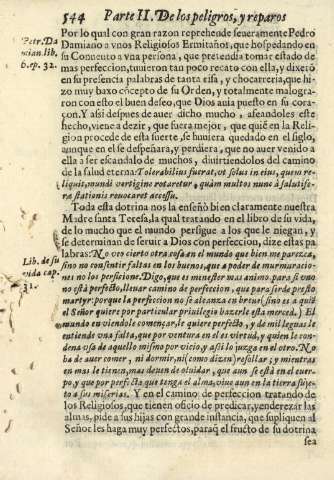 544 Parte II. De los peligros, y reparos
Por lo qual con gran razon reprehende seueramente Pedro
Petr. Da
Damiano a vnos Religiosos Ermitaños, que hospedando en
mian. lib.
su Conuento a vna persona, que pretendia tomar estado de
6. ep. 32.
mas perfeccion, tuuieron tan poco recato con ella, y dixerõ
en su presencia palabras de tanta risa, y chocarreria, que hi-
zo muy baxo cõcepto de su Orden, y totalmente malogra-
ron con esto el buen deseo, que Dios auia puesto en su cora-
çon. Y assi despues de auer dicho mucho, afeandoles este
hecho, viene a dezir, que fuera mejor, que quiẽ en la Reli-
gion procede de esta suerte, se huuiera quedado en el siglo,
aunque en el se despeñara, y perdiera, que no auer venido a
ella a ser escandalo de muchos, diuirtiendolos del camino
de la salud eterna: Tolerabilius fuerat, vt solus in eius, quem re-
liquit, mundi vertigine rotaretur, quàm multos nunc à salutife-
ræ stationis reuocaret accessu.
Toda esta dotrina nos la enseñò bien claramente nuestra
Madre santa Teresa, la qual tratando en el libro de su vida,
de lo mucho que el mundo persigue a los que le niegan, y
se determinan de seruir a Dios con perfeccion, dize estas pa
labras: No veo cierto otra cosa en el mundo que bien me parezca,
Lib. de su
sino no consentir faltas en los buenos, que a poder de murmuracio-
vida cap.
nes no los perficione. Digo, que es menester mas animo para si vno
31.
no està perfecto, lleuar camino de perfeccion, que para ser de presto
martyr: porque la perfeccion no se alcança en breue (sino es a quiẽ
el Señor quiere por particular priuilegio hazerle esta merced.) El
mundo en viendole començar, le quiere perfecto, y de mil leguas le
entiende vna falta, que por ventura en el es virtud, y quien le con-
dena vsa de aquello mismo por vicio, y assi lo juzga en el otro. No
ha de auer comer, ni dormir, ni (como dizen) resollar; y mientras
en mas le tienen, mas deuen de oluidar, que aun se està en el cuer-
po, y que por perfecta que tenga el alma, viue aun en la tierra suje-
to a sus miserias. Y en el camino de perfeccion tratando de
los Religiosos, que tienen oficio de predicar, y enderezar las
almas, pide a sus hijas con grande instancia, que supliquen al
Señor les haga muy perfectos, paraq̃ el fructo de su dotrina
sea